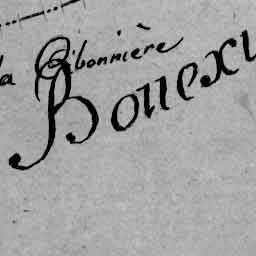 la Ribonnière
Bouexu